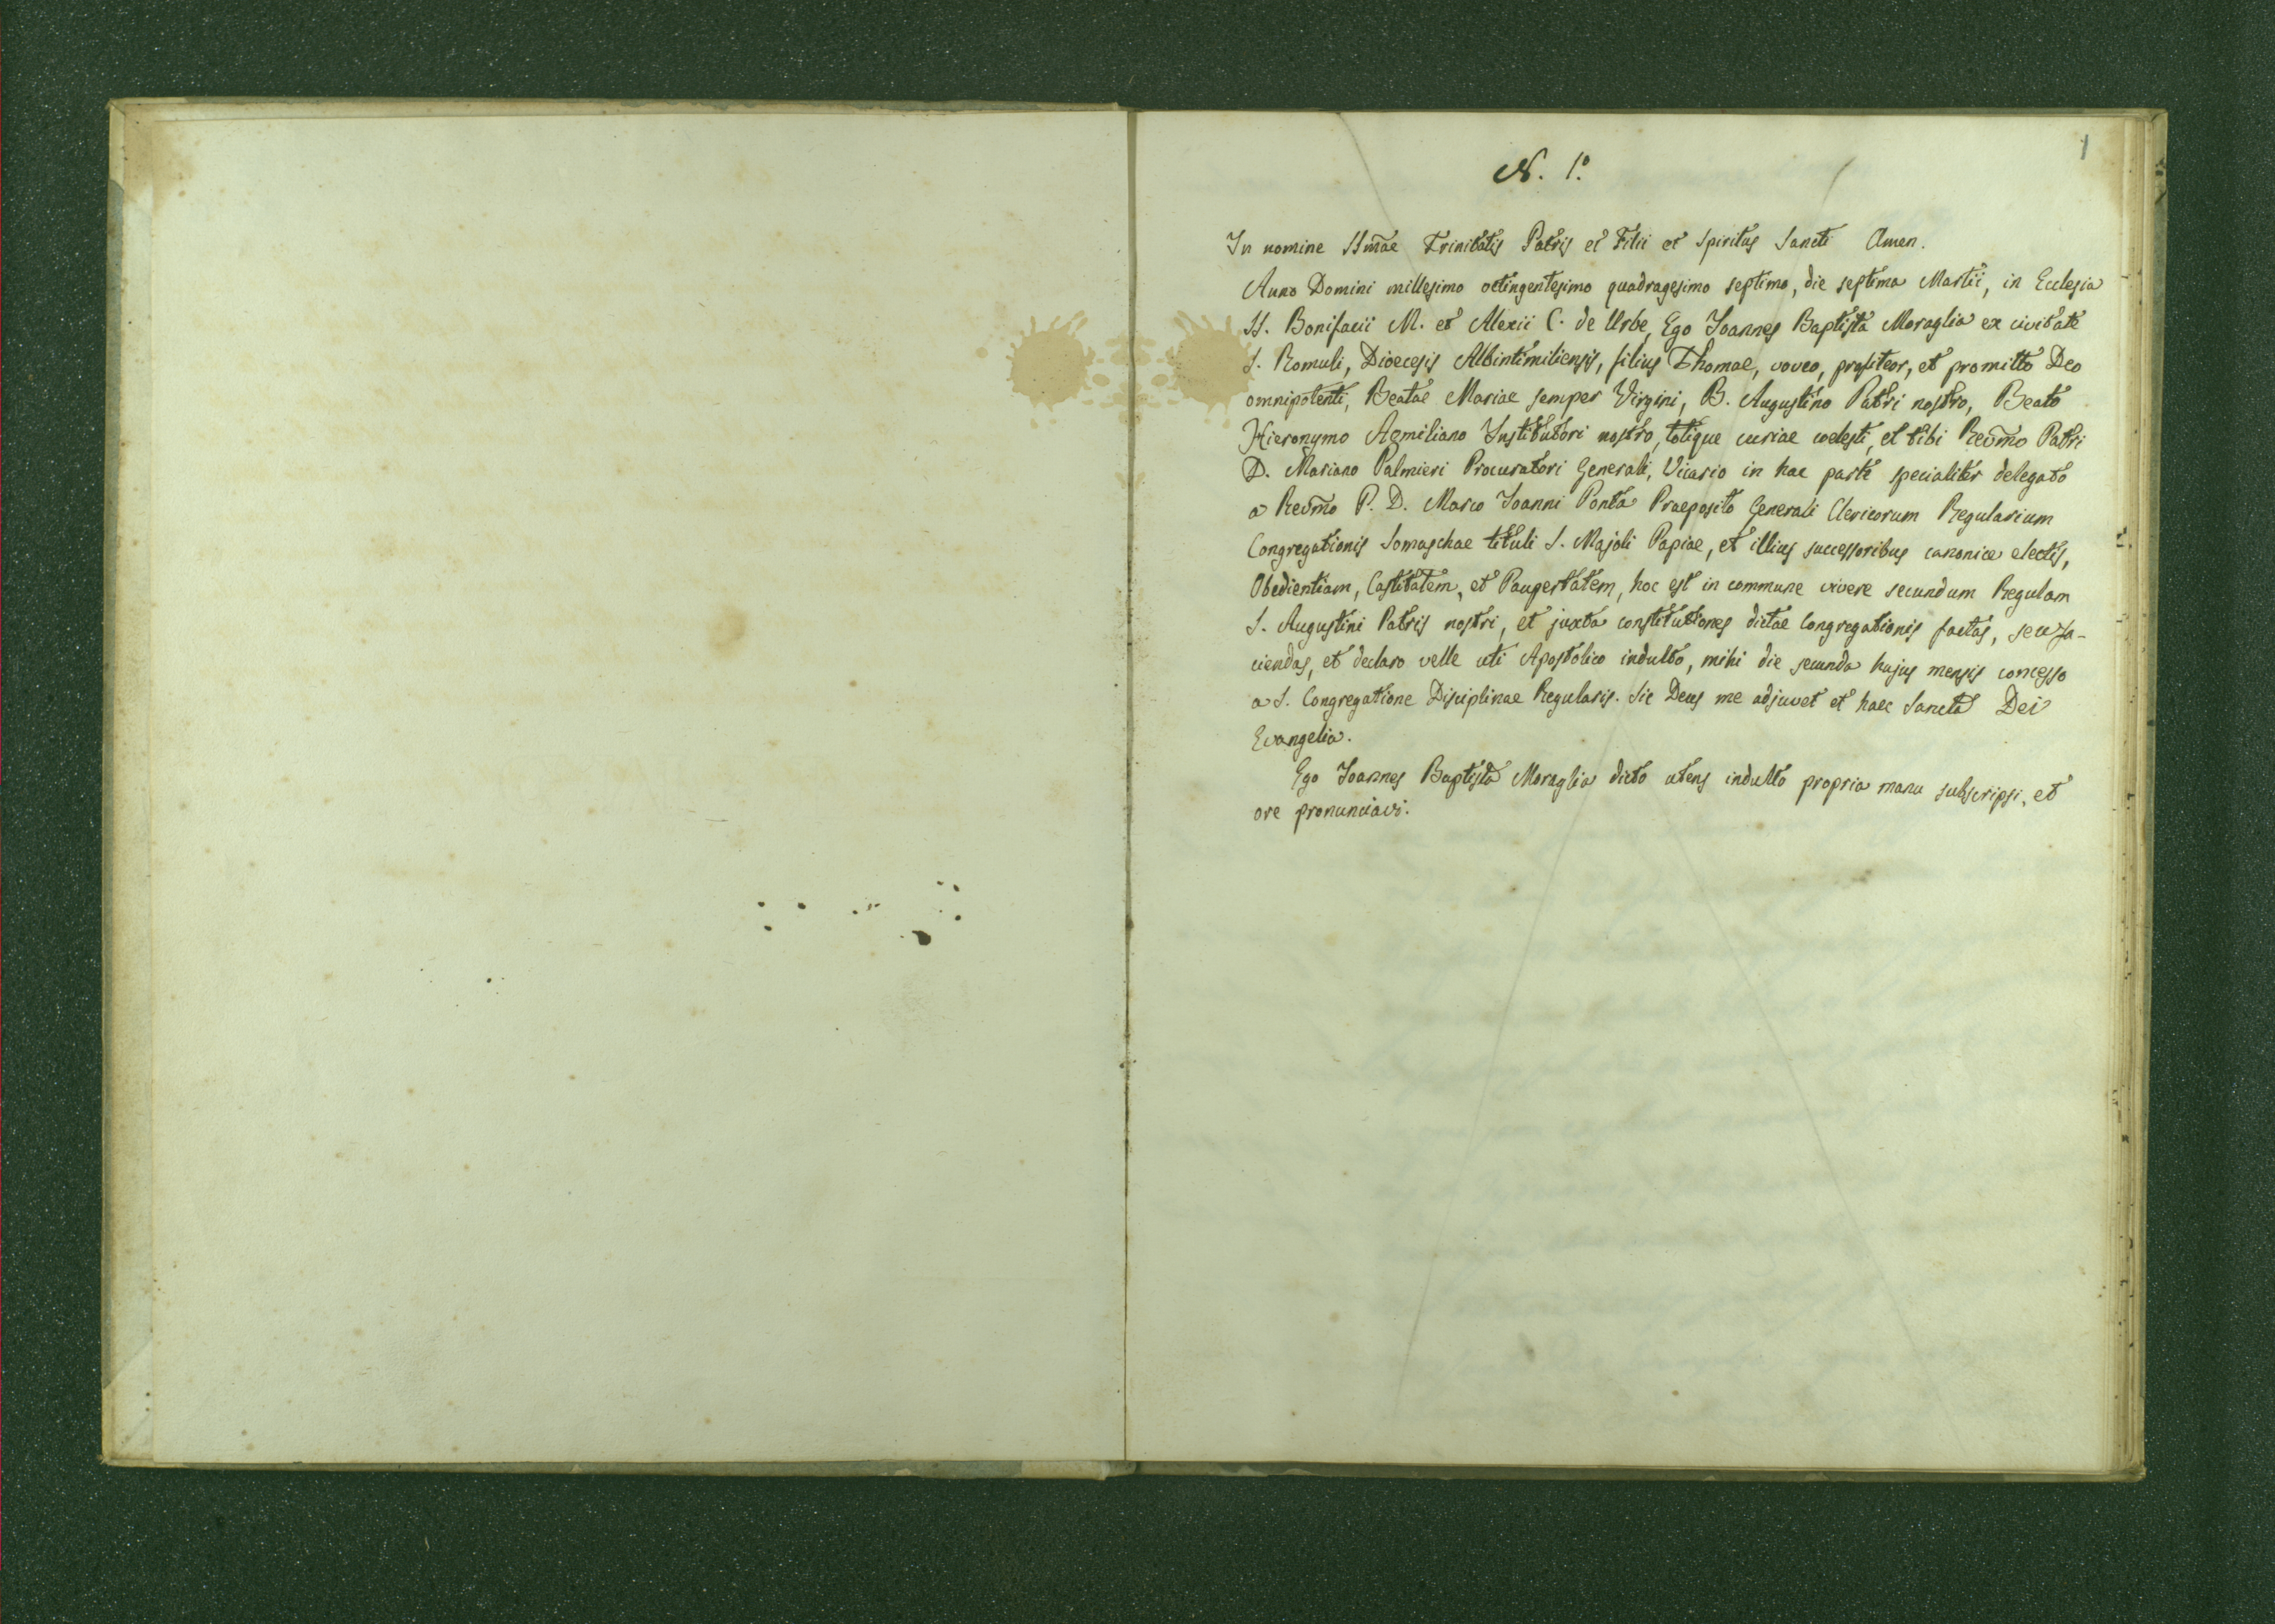 1
N. 1.º
In nomine SSm̃ae Trinitatis Patris et Filii et Spiritus Sancti Amen.
Anno Domini millesimo octingentesimo quadragesimo septimo, die septima Martii, in Ecclesia
SS. Bonifacii M. et Alexii C. de Urbe, Ego Joannes Baptista Moraglia ex civitate
S. Romuli, Dioecesis Albintimiliensis, filius Thomae, voveo, profiteor, et promitto Deo
omnipotenti, Beatae Mariae semper Virgini, B. Augustino Patri nostro, Beato
Hieronymo Aemiliano Institutori nostro, totique curiae coelesti, et tibi Revm̃o Patri
D. Mariano Palmieri Procuratori Generali, Vicario in hac parte specialiter delegato
a Revm̃o P. D. Marco Joanni Ponta Praeposito Generali Clericorum Regularium
Congregationis Somaschae tituli S. Majoli Papiae, et illius successoribus canonice electis,
Obedientiam, Castitatem, et Paupertatem, hoc est in commune vivere secundum Regulam
S. Augustini Patris nostri, et juxta constitutiones dictae Congregationis factas, seu fa-
ciendas, et declaro velle uti Apostolico indulto, mihi die secunda hujus mensis concesso
a S. Congregatione Disciplinae Regularis. Sic Deus me adjuvet et haec Sancta Dei
Evangelia.
Ego Joannes Baptista Moraglia dicto utens indulto propria manu subscripsi, et
ore pronunciavi.